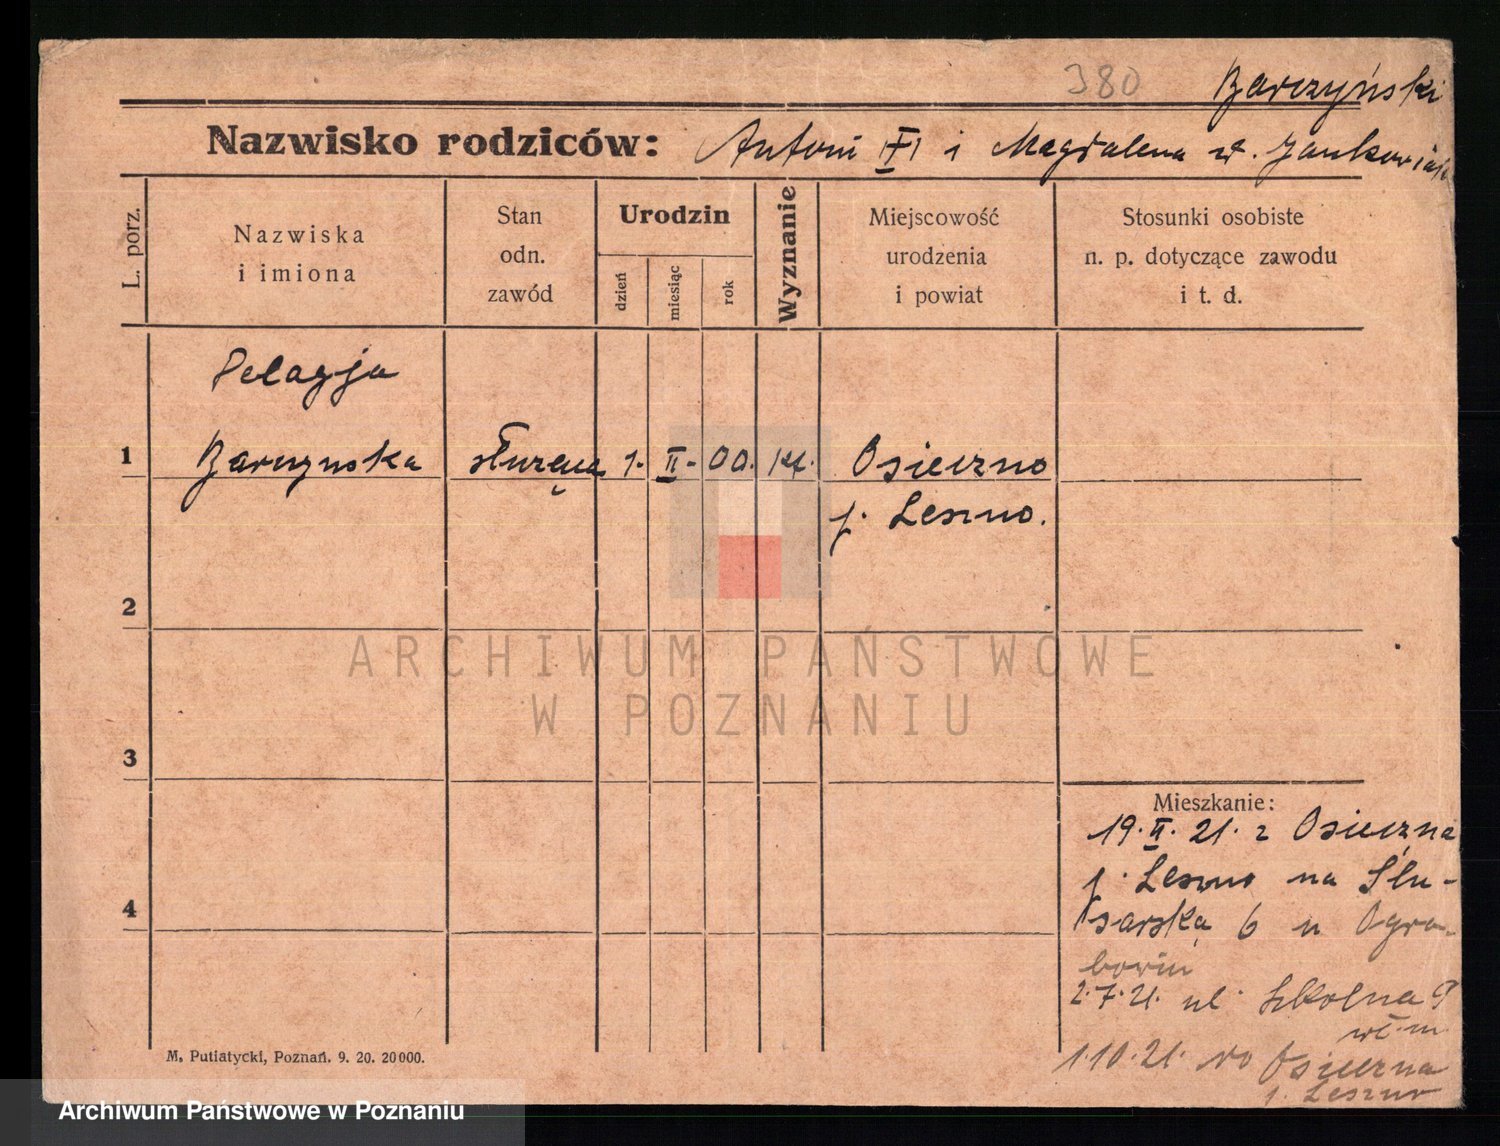 380 Barczyński
Nazwisko rodziców: Antoni i Magdalena
L. porz.
Nazwiska
i imiona
Stan
odn.
zawód
Urodzin
dzień
miesiąc
rok
Wyznanie
Miejscowość
urodzenia
i powiat
Stosunki osobiste
n. p. dotyczące zawodu
i t. d.
Pelagja
1 Barczynska służąca 1. II. 00. kt. Osieczno
p. Leszno.
2
3
4
Mieszkanie:
19. II. 21. z Osieczna
p. Leszno na Ślu-
sarską 6 u
2.7.21. ul. Szkolna
1.10.21. do Osieczna
p. Leszno
M. Putiatycki, Poznań. 9. 20. 20000.
ARCHIWUM PAŃSTWOWE
W POZNANIU
Archiwum Państwowe w Poznaniu